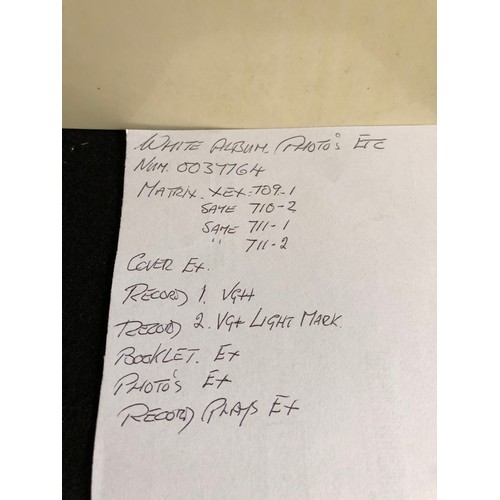 WHITE ALBUM. PHOTO'S ETC
NUM. 0037764
MATRIX. XEX-709-1
SAME 710-2
SAME 711-1
" 711-2
COVER EX.
RECORD 1. VG++
RECORD 2. VG+ LIGHT MARK.
BOOKLET. EX
PHOTO'S EX
RECORD PLAYS EX